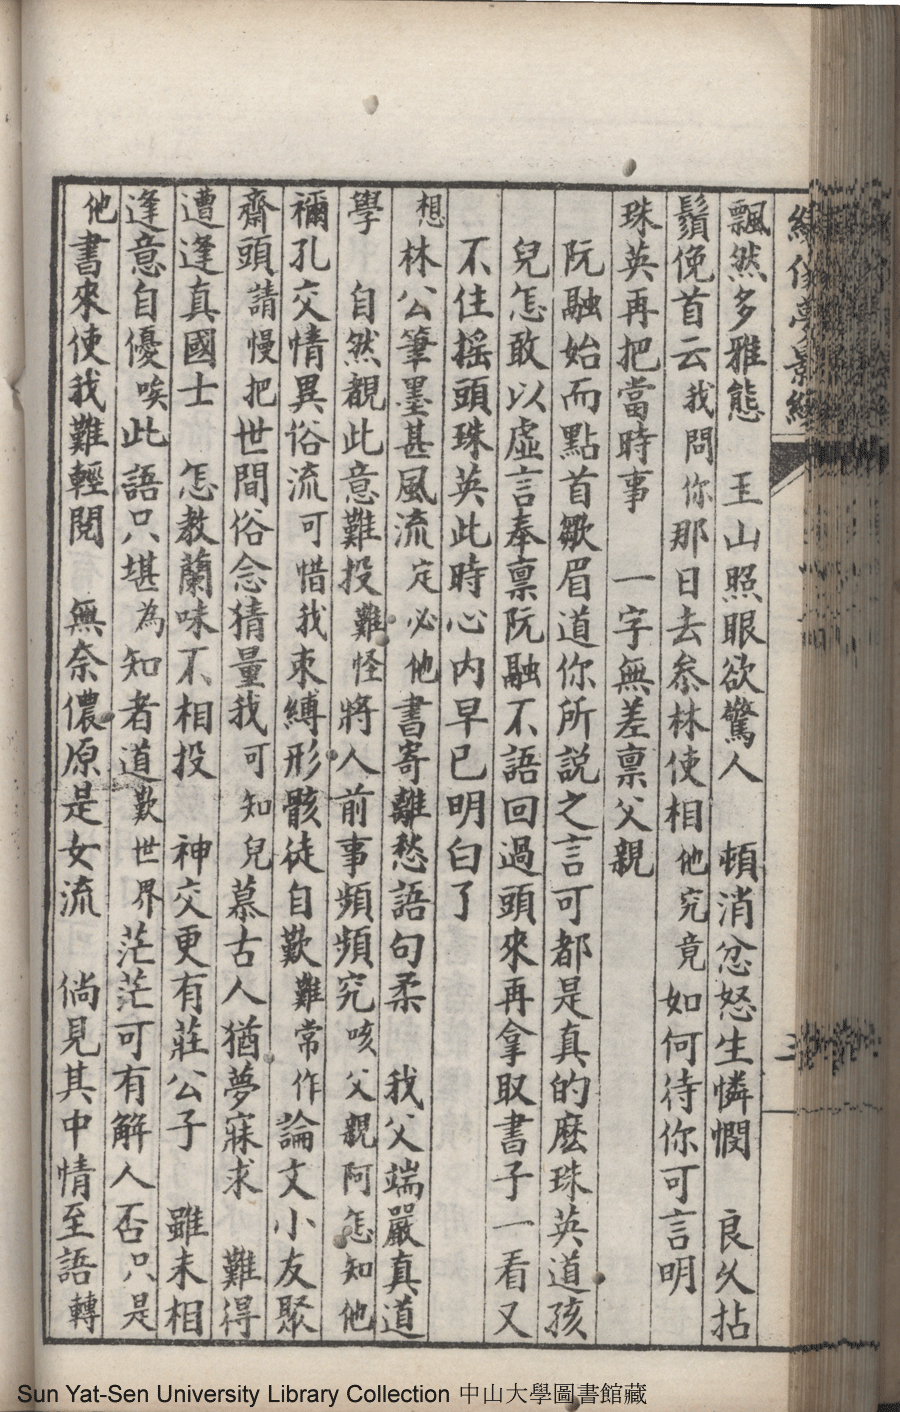 繡像夢影緣
二
飄然多雅態　玉山照眼欲驚人　頓消忿怒生憐憫　良久拈
鬚俛首云我問你那日去叅林使相他究竟如何待你可言明
珠英再把當時事　一字無差禀父親
阮融始而點首皺眉道你所説之言可都是真的麽珠英道孩
兒怎敢以虛言奉禀阮融不語回過頭來再拿取書子一看又
不住摇頭珠英此時心内早已明白了
想林公筆墨甚風流定必他書寄離愁語句柔　我父端嚴真道
學　自然觀此意難投難怪將人前事頻頻究咳父親阿怎知他
禰孔交情異俗流可惜我束縛形骸徒自歎難常作論文小友聚
齋頭請慢把世間俗念猜量我可知兒慕古人猶夢寐求　難得
遭逢真國士　怎教蘭味不相投　神交更有莊公子　雖未相
逢意自優唉此語只堪為知者道歎世界茫茫可有解人否只是
他書來使我難輕閲　無奈儂原是女流　倘見其中情至語轉
Sun Yat-Sen University Library Collection 中山大學圖書館藏